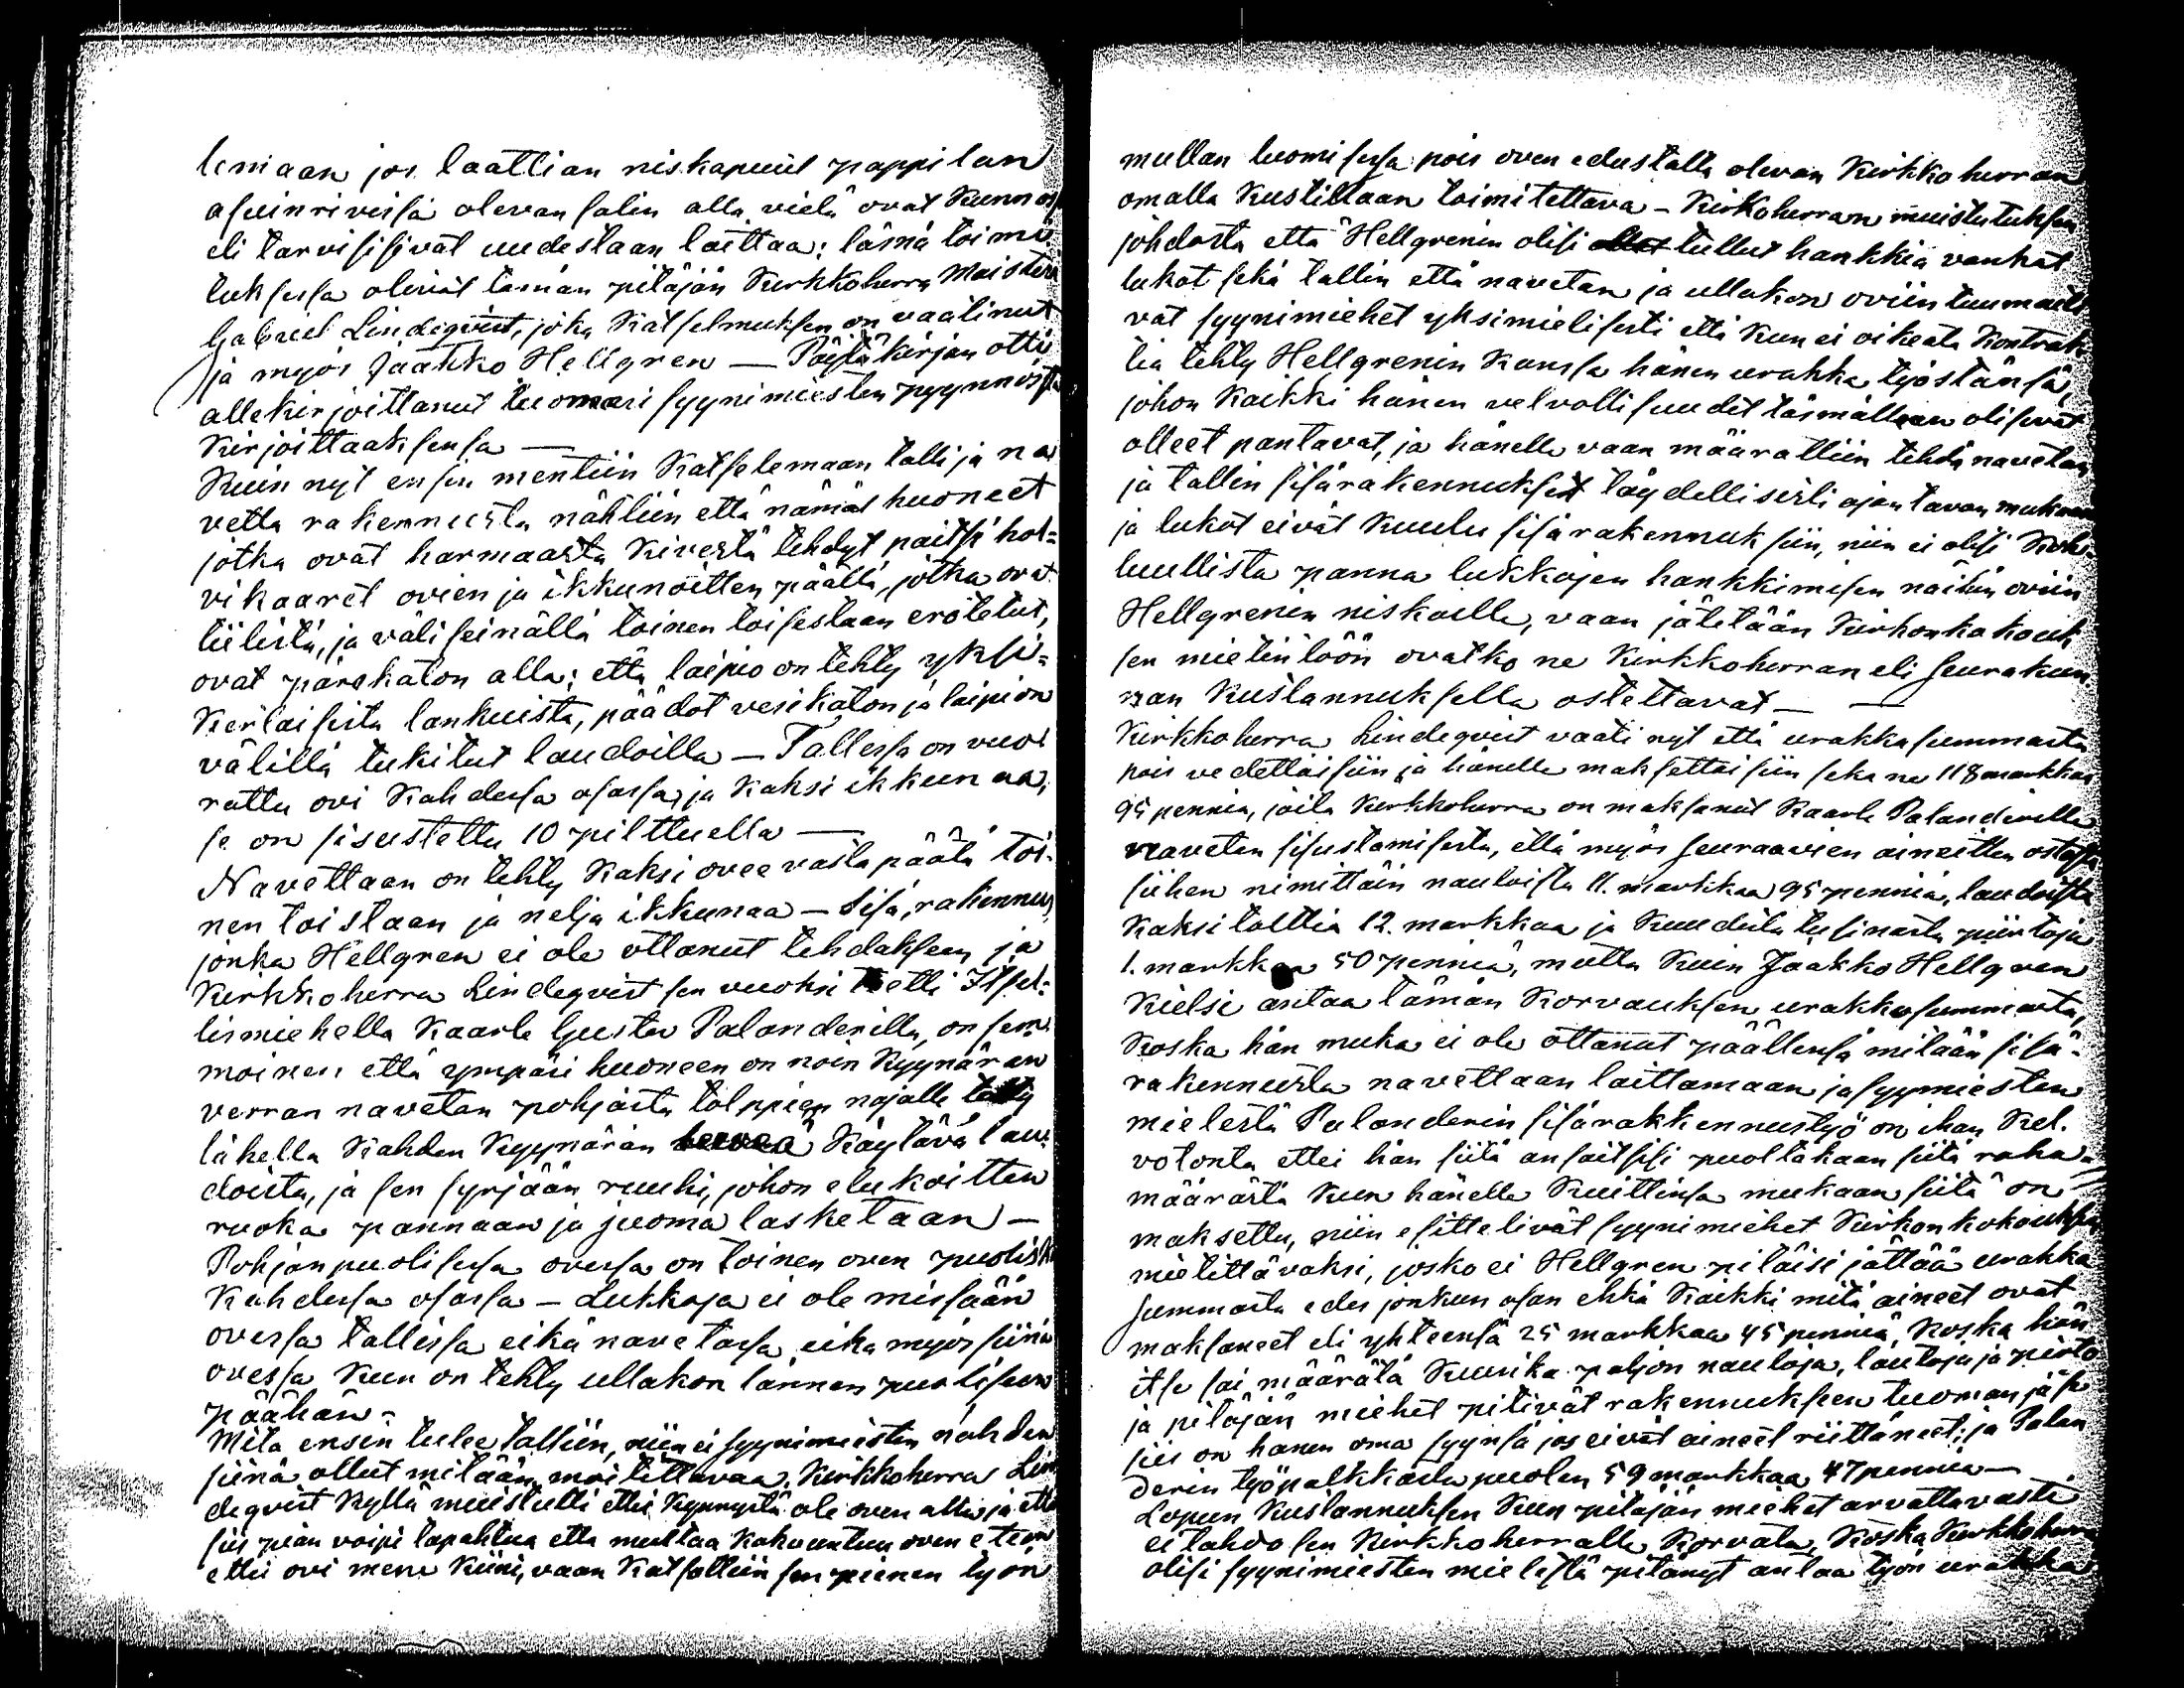 lemaan jos laattian niskapuut pappilan
asuinrivissä olevan salin alla vielä ovat Kunnossa
eli tarvisisivat uudestaan laittaa: läsnä toimi
tuksessa olivat tämän pitäjän Kirkkoherra Maisteri
Gabriel Lindeqvist, joka Katselmuksen on vaatinut
ja myös Jaakko Hellgren — Pöytäkirjan otti
allekirjoittanut tuomari syynimiesten pyynnöstä
Kirjoittaaksensa —
Kuin nyt ensin mentiin Katselemaan talli ja na
vetta rakennusta nähtiin että nämät huoneet
jotka ovat harmaasta Kivestä tehdyt paitsi hol=
vikaaret ovien ja ikkunoitten päällä, jotka ovat
tiilistä, ja väliseinällä toinen toisestaan erotetut,
ovat pärekaton alla; että laipio on tehty yksi=
Kertaisista lankuista, päädot vesikaton ja laipion
välillä tukitut laudoilla — Tallissa on vuo=
rattu ovi Kahdessa osassa, ja Kaksi ikkunaa,
se on sisustettu 10 pilttuella —
Navettaan on tehty Kaksi ovee vastapäätä toi-
nen toistaan ja neljä ikkunaa — Sisä, rakennus,
jonka Hellgren ei ole ottanut tehdäkseen ja
Kirkkoherra Lindeqvist sen vuoksi teetti Itsel=
lismiehellä Kaarle Gustav Palanderilla, on sem=
moinen että ympäri huoneen on noin Kyynärän
verran navetan pohjasta tolppien nojalle tehty
lähellä Kahden Kyynärän Käytävä lau=
doista, ja sen syrjään ruuhi, johon elukoitten
ruoka pannaan ja juoma lasketaan —
Pohjanpuolisessa ovessa on toinen oven puolisko
Kahdessa osassa — Lukkoja ei ole missään
ovessa tallissa eikä navetassa eikä myös siinä
ovessa Kun on tehty ullakon lännen puoliseen
päähän —
Mitä ensin tulee talliin, niin ei syynimiesten nähden
siinä ollut mitään moitittavaa. Kirkkoherra Lin
deqvist Kyllä muistutti ettei Kynnystä ole oven alla ja että
siis pian voipi tapahtua että multaa Kokountuu oven eteen
ettei ovi mene Kiini, vaan Katsottiin sen pienen työn
mullan luomisessa pois oven edustalta olevan Kirkkoherran
omalla Kustillaan toimitettava — Kirkoherran muistutuksen
johdosta että Hellgrenin olisi tullut hankkia vankat
lukot sekä tallin että navetan ja ullakon oviin tuumaili
vat syynimiehet yksimielisesti että Kun ei oikeata Kontrak
tia tehty Hellgrenin Kanssa hänen urakka työstänsä,
johon Kaikki hänen velvollisuudet täsmälleen olisivat
olleet pantavat, ja hänelle vaan määrättiin tehdä navetan
ja tallin sisärakennukset täydellisesti ajan tavan mukaan
ja lukot eivät Kuulu sisärakennuksiin, niin ei olisi Koh-
tuullista panna lukkojen hankkimisen näihin oviin
Hellgrenin niskoille, vaan jätetään Kirkonkokouk
sen mietintöön ovatko ne Kirkkoherran eli seurakun
nan Kustannuksella ostettavat —
Kirkkoherra Lindeqvist vaati nyt että urakkasummasta
pois vedettäisiin ja hänelle maksettaisiin sekä ne 118 markkaa
95 penniä, joita Kirkkoherra on maksanut Kaarle Palanderille
navetan sisustamisesta, että myös seuraavien aineitten ostosta
siihen nimittäin nauloista 11. markkaa 95 penniä, laudoista
Kaksi tolttia 12. markkaa ja Kuudesta tusinasta piirtoja
1. markkaa 50 penniä, mutta Kuin Jaakko Hellgren
Kielsi antaa tämän Korvauksen urakkasummasta,
Koska hän muka ei ole ottanut päällensä mitään sisä-
rakennusta navettaan laittamaan ja syymiesten
mielestä Palanderin sisärakkennustyö on ihan Kel-
votonta ettei hän siitä ansaitsisi puoltakaan siitä raha-
määrästä Kun hänelle Kuittinsa mukaan siitä on
maksettu, niin esittelivät syynimiehet Kirkonkokouksen
mietittäväksi, josko ei Hellgren pitäisi jättää urakka
summasta edes jonkun osan ehkä Kaikki mitä aineet ovat
maksaneet eli yhteensä 25 markkaa 45 penniä, Koska hän
itse sai määrätä Kuinka paljon nauloja, lautoja ja piirto
ja pitäjän miehet pitivät rakennukseen tuoman ja se
siis on hänen oma syynsä jos eivät aineet riittäneet; ja Palan
derin työpalkkasta puolen 59 markkaa 47 penniä —
Lopun Kustannuksen Kun pitäjän miehet arvattavasti
ei tahdo sen Kirkkoherralle Korvata, Koska Kirkkoherra
olisi syynimiesten mielestä pitänyt antaa työn urakka